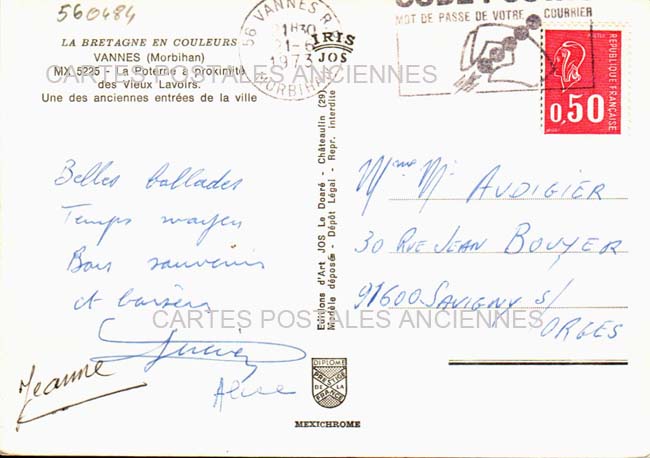 560484
LA BRETAGNE EN COULEURS
VANNES (Morbihan)
MX 5225 - La Poterne à proximité
des Vieux Lavoirs.
Une des anciennes entrées de la ville
56 VANNES R
21H30
1973
MORBIHAN
IRIS
JOS
MOT DE PASSE DE VOTRE COURRIER
POSTES
REPUBLIQUE FRANÇAISE
0,50
CARTES POSTALES ANCIENNES
Belles ballades
Temps moyen
Bons souvenirs
et baisers
Jeanne
Alice
Editions d'Art JOS Le Doaré - Châteaulin (29)
Modèle déposé - Dépôt Légal - Repr. interdite
Mme Mr AUDIGIER
30 RUE JEAN BOUYER
91600 SAVIGNY S/
ORGES
CARTES POSTALES ANCIENNES
DIPLOME
PRESTIGE
DE LA
FRANCE
MEXICHROME